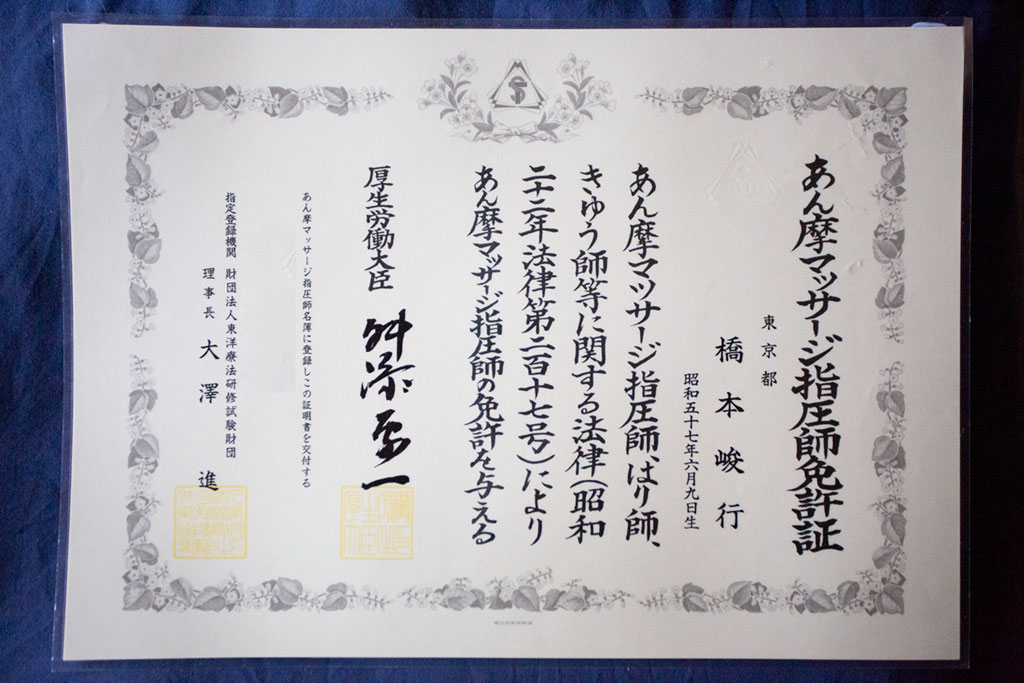 あん摩マッサージ指圧師免許証
東京都
橋本峻行
昭和五十七年六月九日生
あん摩マツサージ指圧師、はり師、
きゆう師等に関する法律(昭和
二十二年法律第二百十七号)により
あん摩マッサージ指圧師の免許を与える
厚生労働大臣 舛添要一
あん摩マッサージ指圧師名簿に登録しこの証明書を交付する
指定登録機関 財団法人東洋療法研修試験財団
理事長 大澤進